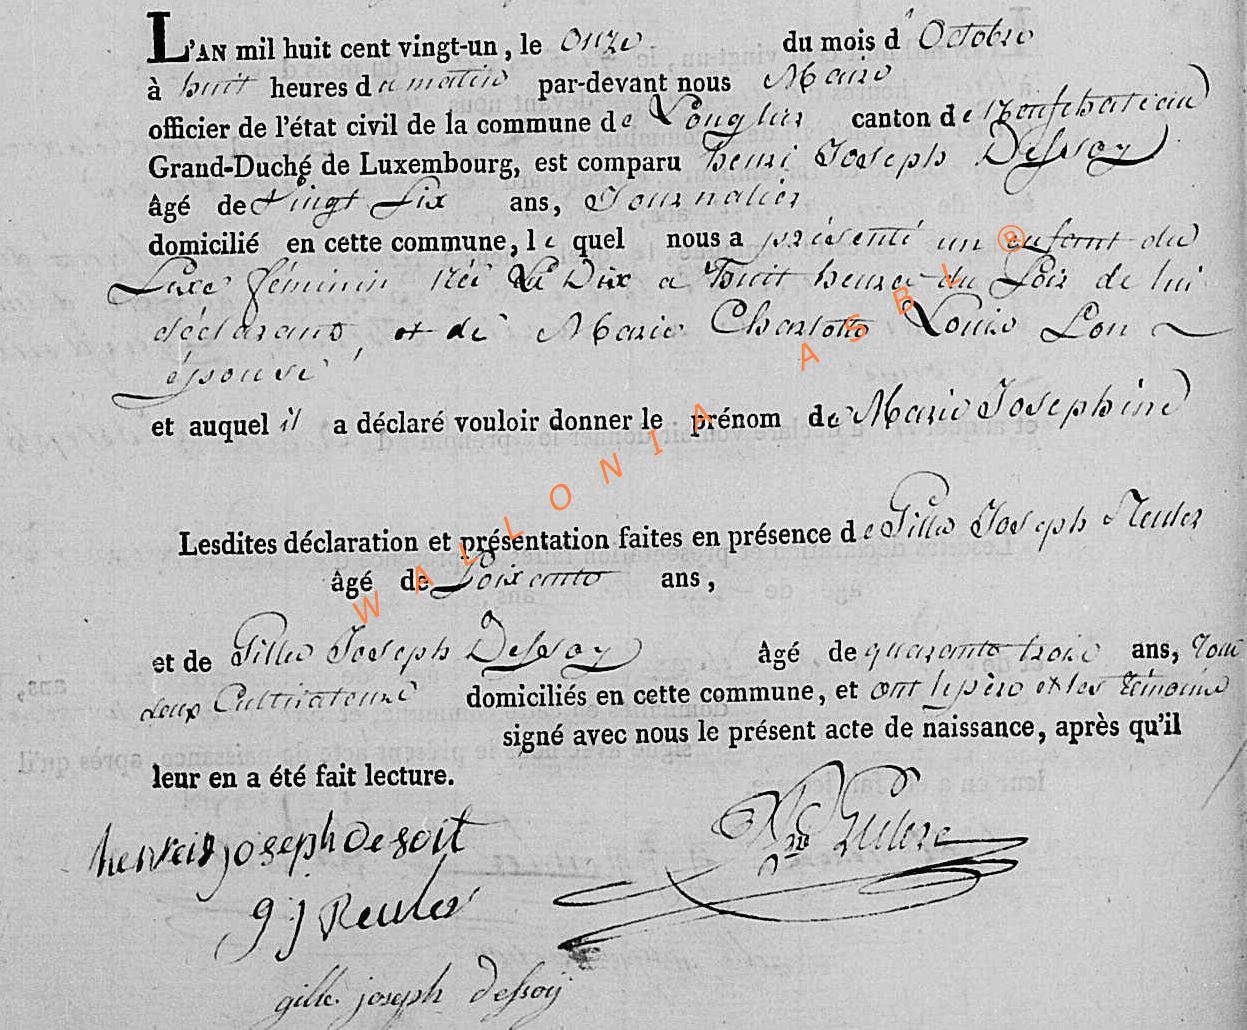 L'AN mil huit cent vingt-un, le onze du mois d' Octobre
à huit heures du matin par-devant nous Maire
officier de l'état civil de la commune de Longlier canton de Neufchateau
Grand-Duché de Luxembourg, est comparu henri Joseph Dessoy
âgé de vingt six ans, Journalier
domicilié en cette commune, le quel nous a présenté un enfant du
Sexe féminin née Le Dix a huit heures du soir de lui
déclarant, et de Marie Charlotte Louise Son
épouse
et auquel il a déclaré vouloir donner le prénom de Marie Josephine
Lesdites déclaration et présentation faites en présence de Gille Joseph Reuler
âgé de Soixante ans,
et de Gille Joseph Dessoy âgé de quarante trois ans, tous
deux Cultivateurs domiciliés en cette commune, et ont le père et les témoins
signé avec nous le présent acte de naissance, après qu'il
leur en a été fait lecture.
henri joseph desoit
g j Reuler
gille joseph dessoy
WALLONIA ASBL ®